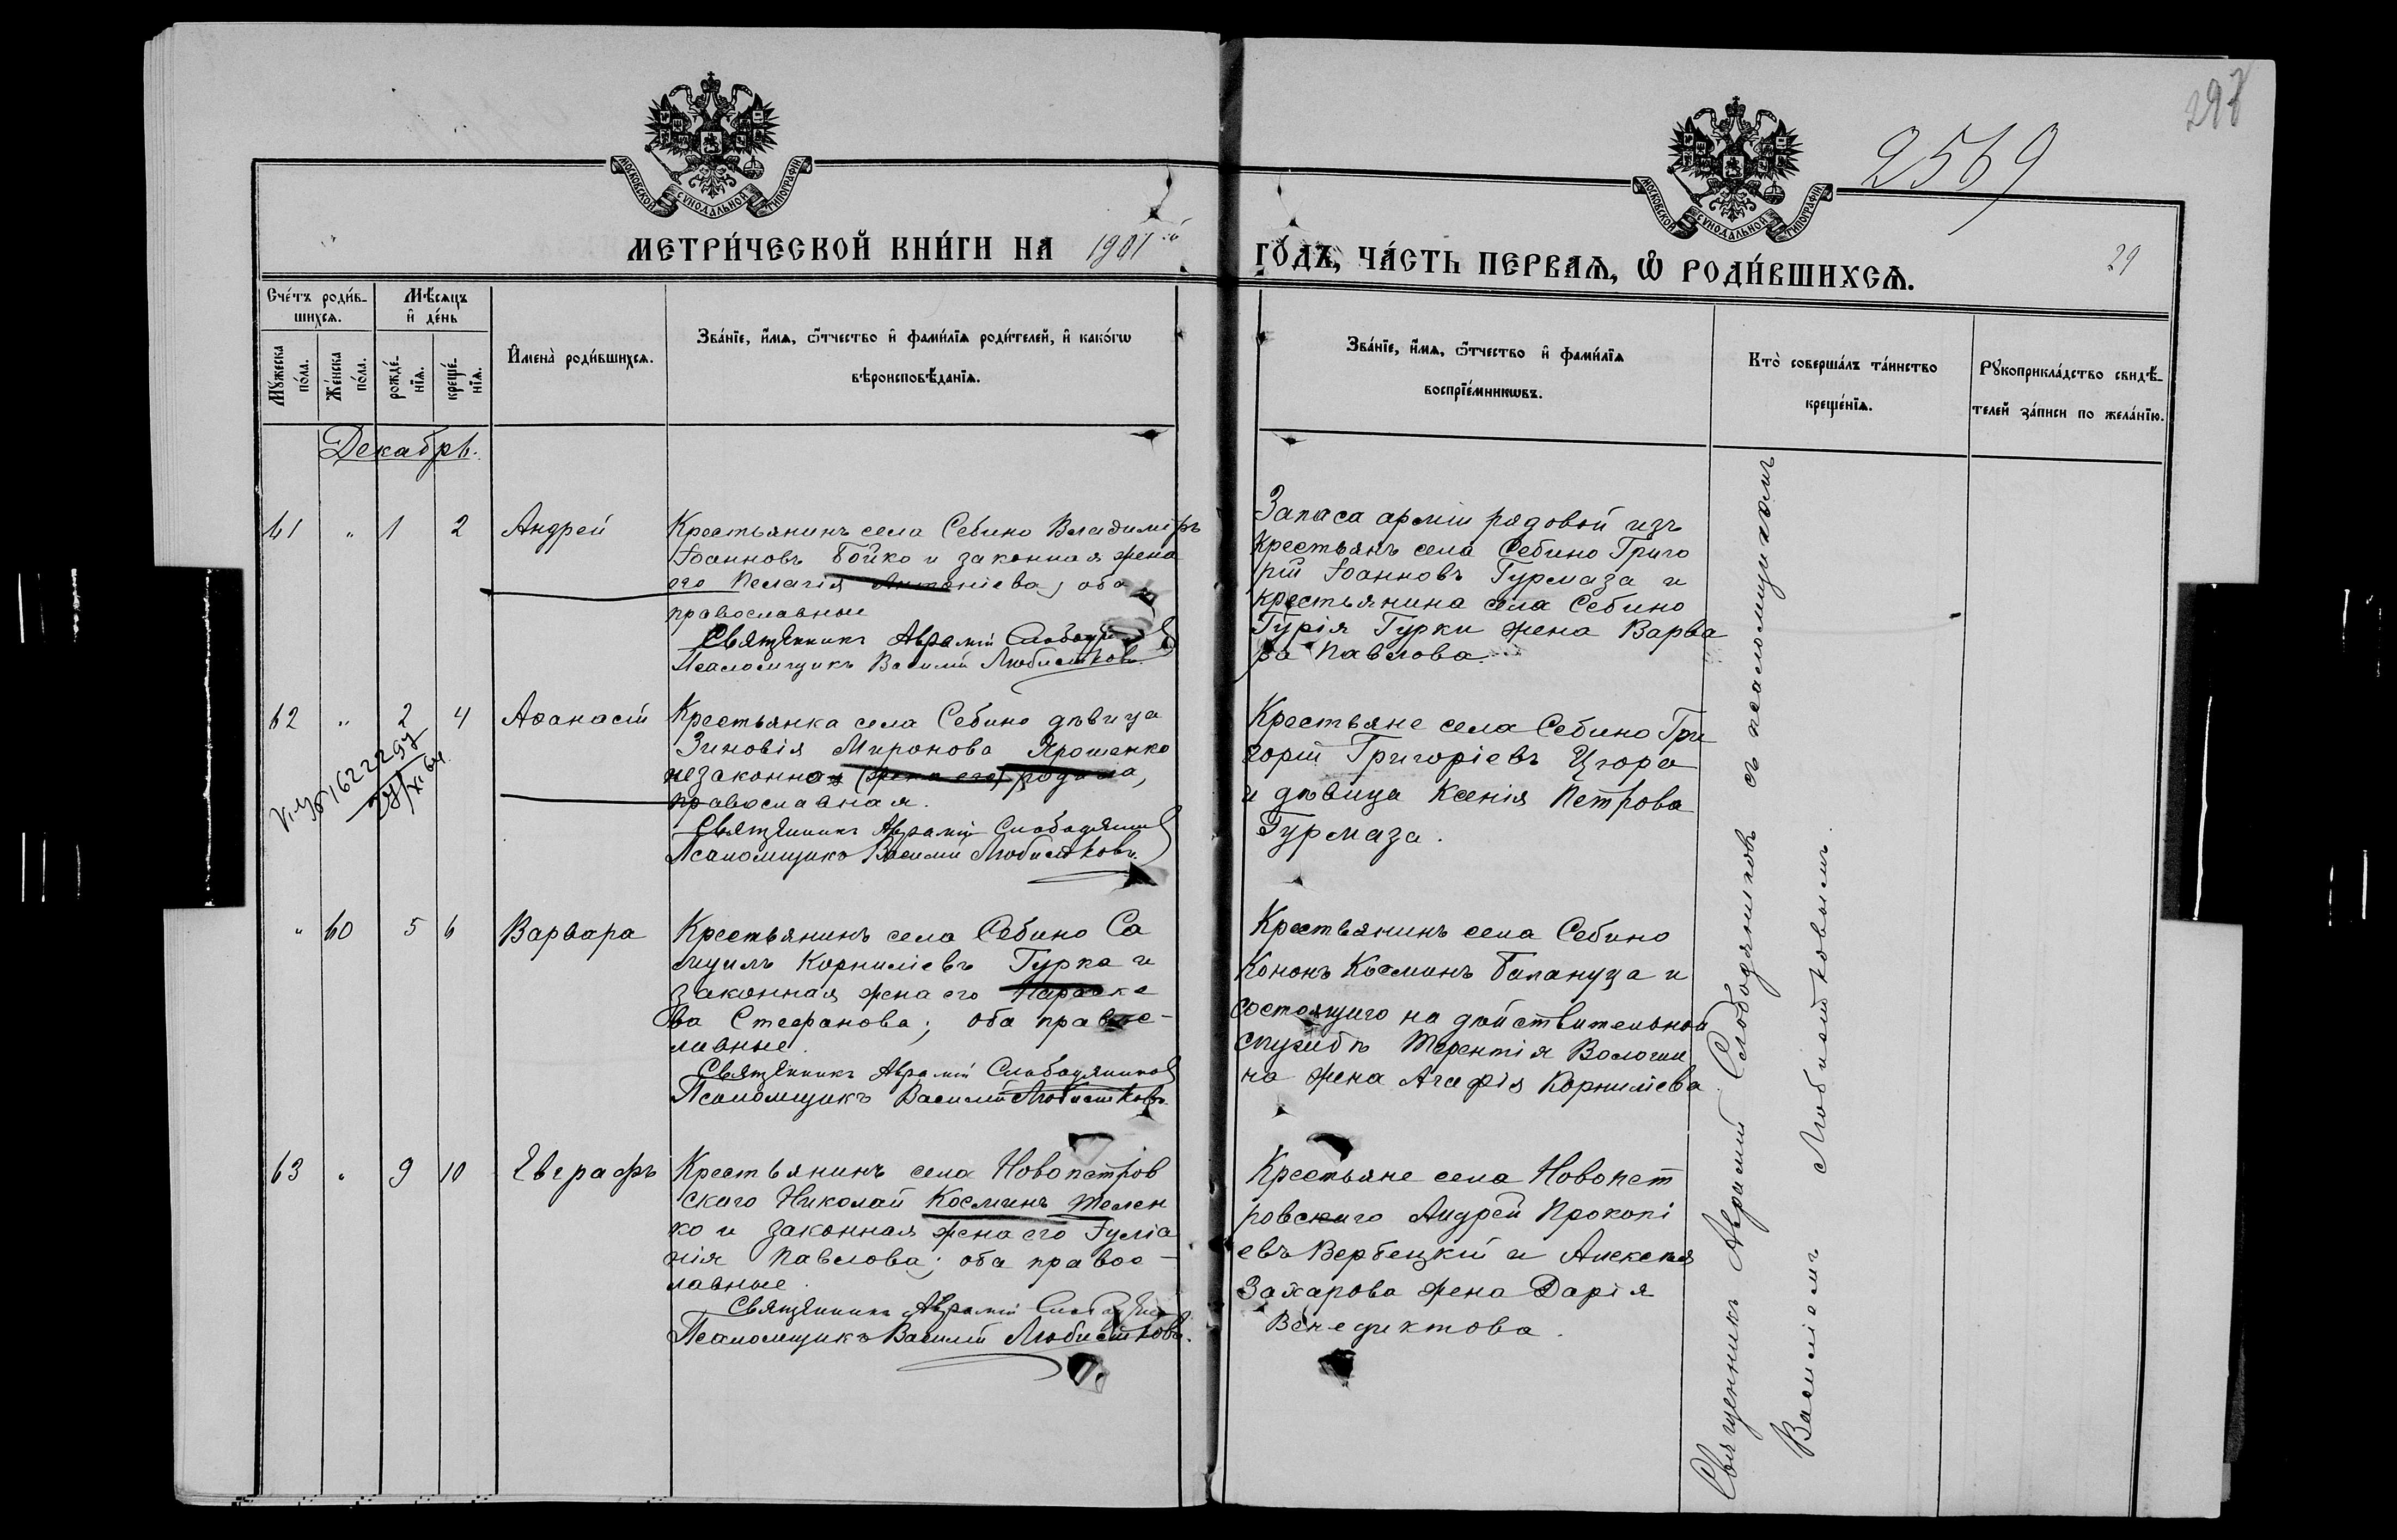 298
2569
29
МОСКОВСКОЙ СѴНОДАЛЬНОЙ ТИПОГРАФІИ
МОСКОВСКОЙ СѴНОДАЛЬНОЙ ТИПОГРАФІИ
МЕТРИ́ЧЕСКОЙ КНИ́ГИ НА 1901й ГО́ДЪ, ЧА́СТЬ ПЕРВАѦ, Ѡ РОДИ́ВШИХСѦ.
Счéтъ роди́в-
шихсѧ.
Мѣ́сяцъ
и҆ де́нь
Мꙋ́жеска
по́ла.
Же́нска
по́ла.
рожде́-
нїѧ.
креще́-
нїѧ.
И҆мена̀ роди́вшихсѧ.
Зва́нїе, и҆́мѧ, ѻ҆́тчество и҆ фами́лїѧ роди́телей, и҆ како́гѡ
вѣроисповѣ́данїѧ.
Зва́нїе, и҆́мѧ, ѻ҆́тчество и҆ фами́лїѧ
воспрїе́мникѡвъ.
Кто̀ соверша́лъ та́инство
креще́нїѧ.
Рꙋкоприкла́дство свидѣ́-
телей за́писи по жела́нїю.
Декабрь.
61 " 1 2 Андрей
Крестьянинъ села Себино Владиміръ
Іоанновъ Бойко и законная жена
его Пелагія Антоніева, оба
православные
Священникъ Аврамій
Псаломщикъ Василій Любистковъ
Запаса арміи рядовой изъ
крестьянъ села Себино Григо
рій Іоанновъ Гурмаза и
крестьянина села Себино
Гурія Гурки жена Варва
ра Павлова.
62 " 2 4 Аѳанасій
1622297
Крестьянка села Себино дѣвица
Зиновія Миронова Ярошенко
незаконно (жена его) родила,
православная.
Священникъ Аврамій Слободяниковъ
Псаломщикъ Василій Любистковъ
Крестьяне села Себино Гри
горій Григоріевъ Цгора
и дѣвица Ксенія Петрова
Гурмаза.
" 60 5 6 Варвара
Крестьянинъ села Себино Са
муилъ Корниліевъ Гурка и
законная жена его Параске
ва Стефанова; оба правос-
лавные.
Священникъ Аврамій Слободяниковъ
Псаломщикъ Василій Любистковъ
Крестьянинъ села Себино
Кононъ Косминъ Балануца и
состоящаго на дѣйствительной
службѣ Терентія Вологжи
на жена Агафія Корниліева
63 " 9 10 Евграфъ
Крестьянинъ села Новопетров
скаго Николай Косминъ Телен
ко и законная жена его Іуліа
нія Павлова; оба правос-
лавные.
Священникъ Аврамій
Псаломщикъ Василій Любистковъ.
Крестьяне села Новопет
ровскаго Андрей Прокопі
евъ Вербецкій и Алексѣя
Захарова жена Дарія
Венедиктова.
Священникъ Аврамій Слободяниковъ съ псаломщикомъ
Василіемъ Любистковымъ.